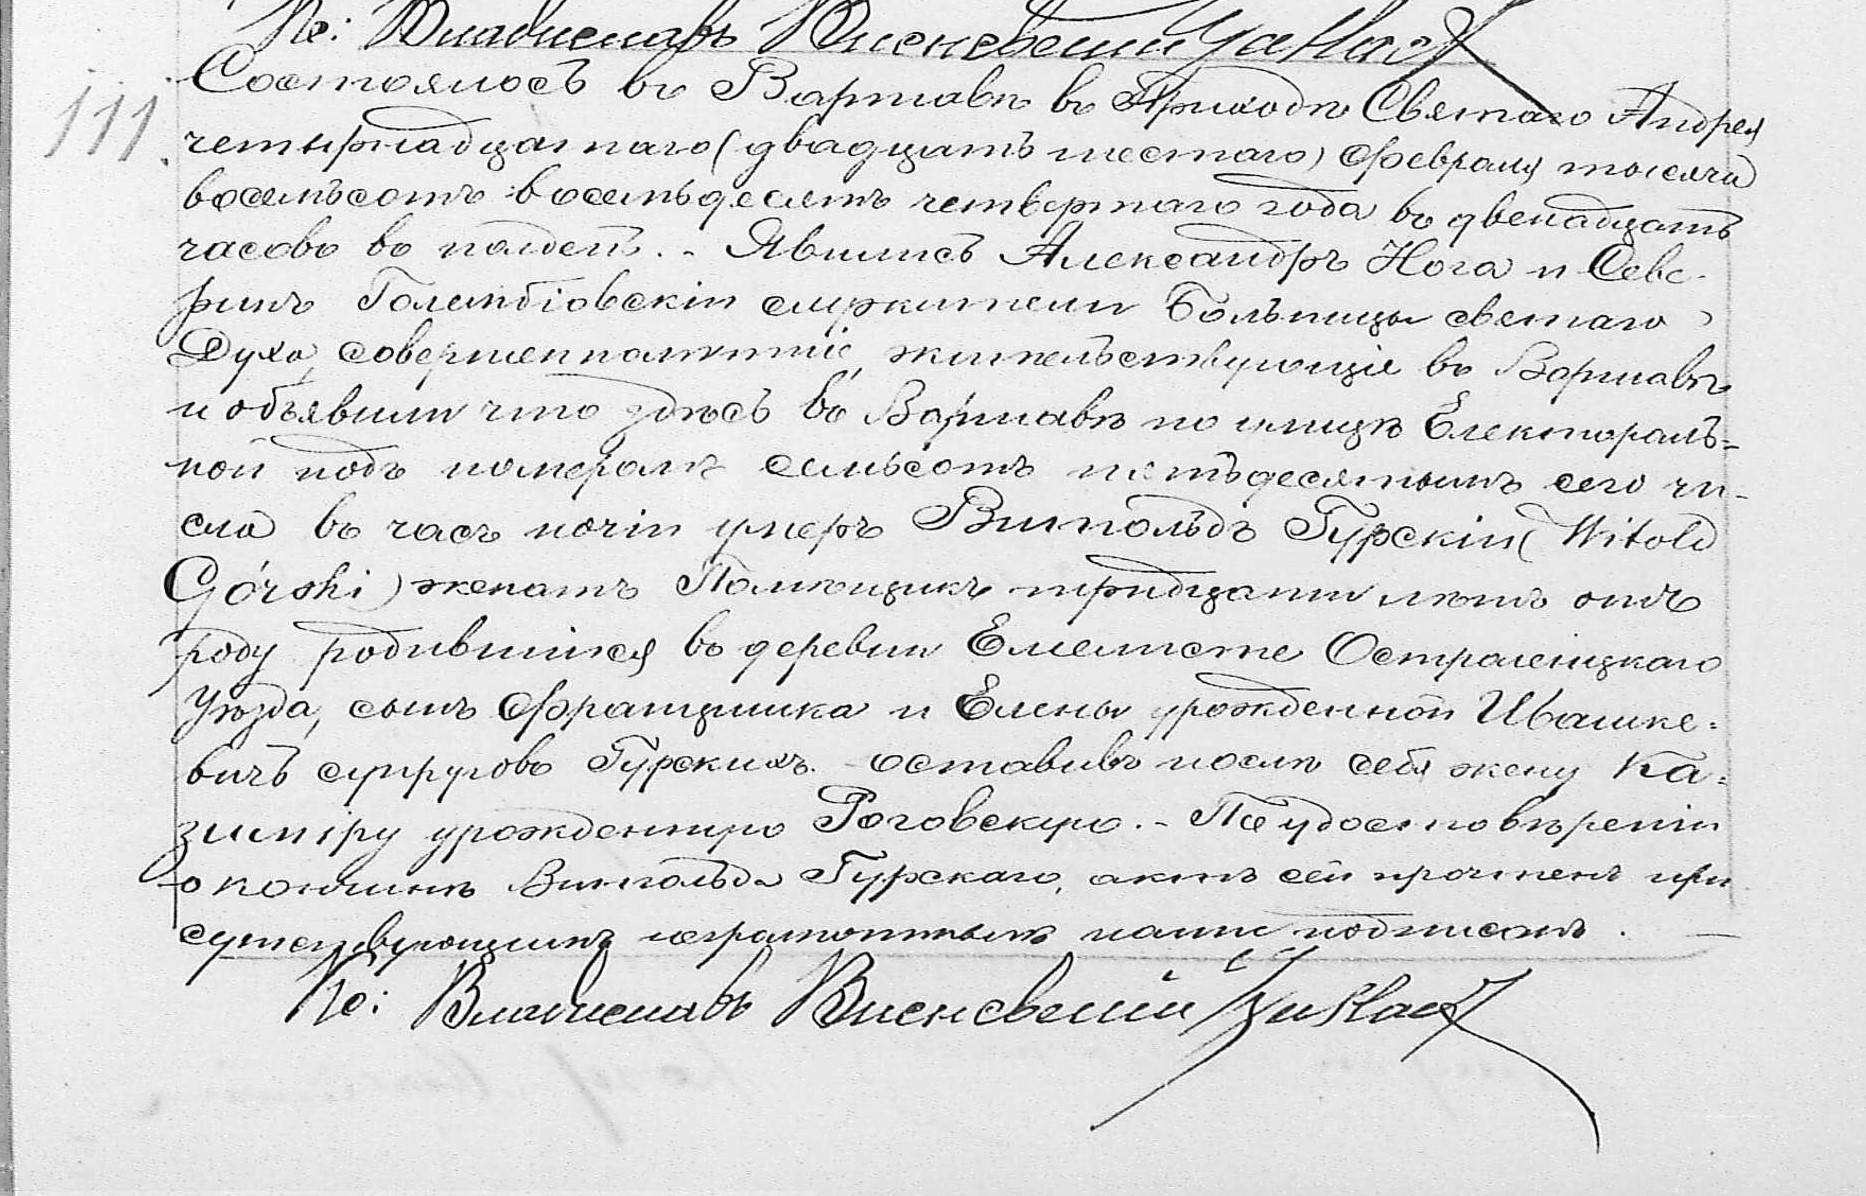 Кс: Владиславъ Висневскій
111.
Состоялось въ Варшавѣ въ Приходѣ Святаго Андрея
четырнадцатаго (двадцать шестаго) Февраля тысяча
восемьсотъ восемьдесятъ четвертаго года въ двенадцать
часовъ въ полдень. - Явились Александръ Нога и Севе-
ринъ Голембіовскій служители Больницы святаго
Духа, совершеннолѣтніе, жительствующіе въ Варшавѣ
и объявили что здѣсь въ Варшавѣ по улицѣ Електораль=
ной подъ номеромъ семьсотъ пятьдесятымъ сего чи-
сла въ часъ ночіи умеръ Витольдъ Гурскій (Witold
Górski) женатъ Помѣщикъ тридцати лѣтъ отъ
роду родившійся въ деревни Остроленцкаго
Уѣзда, сынъ Францишка и Елены урожденной Ивашке=
вичъ супруговъ Гурскихъ. - оставивъ послѣ себя жену Ка=
зимиру урожденную Роговскую. - По удостовѣреніи
о кончинѣ Витольда Гурскаго, актъ сей прочтенъ при
сутствующимъ неграмотнымъ нами подписанъ. -
Кс: Владиславъ Висневскій